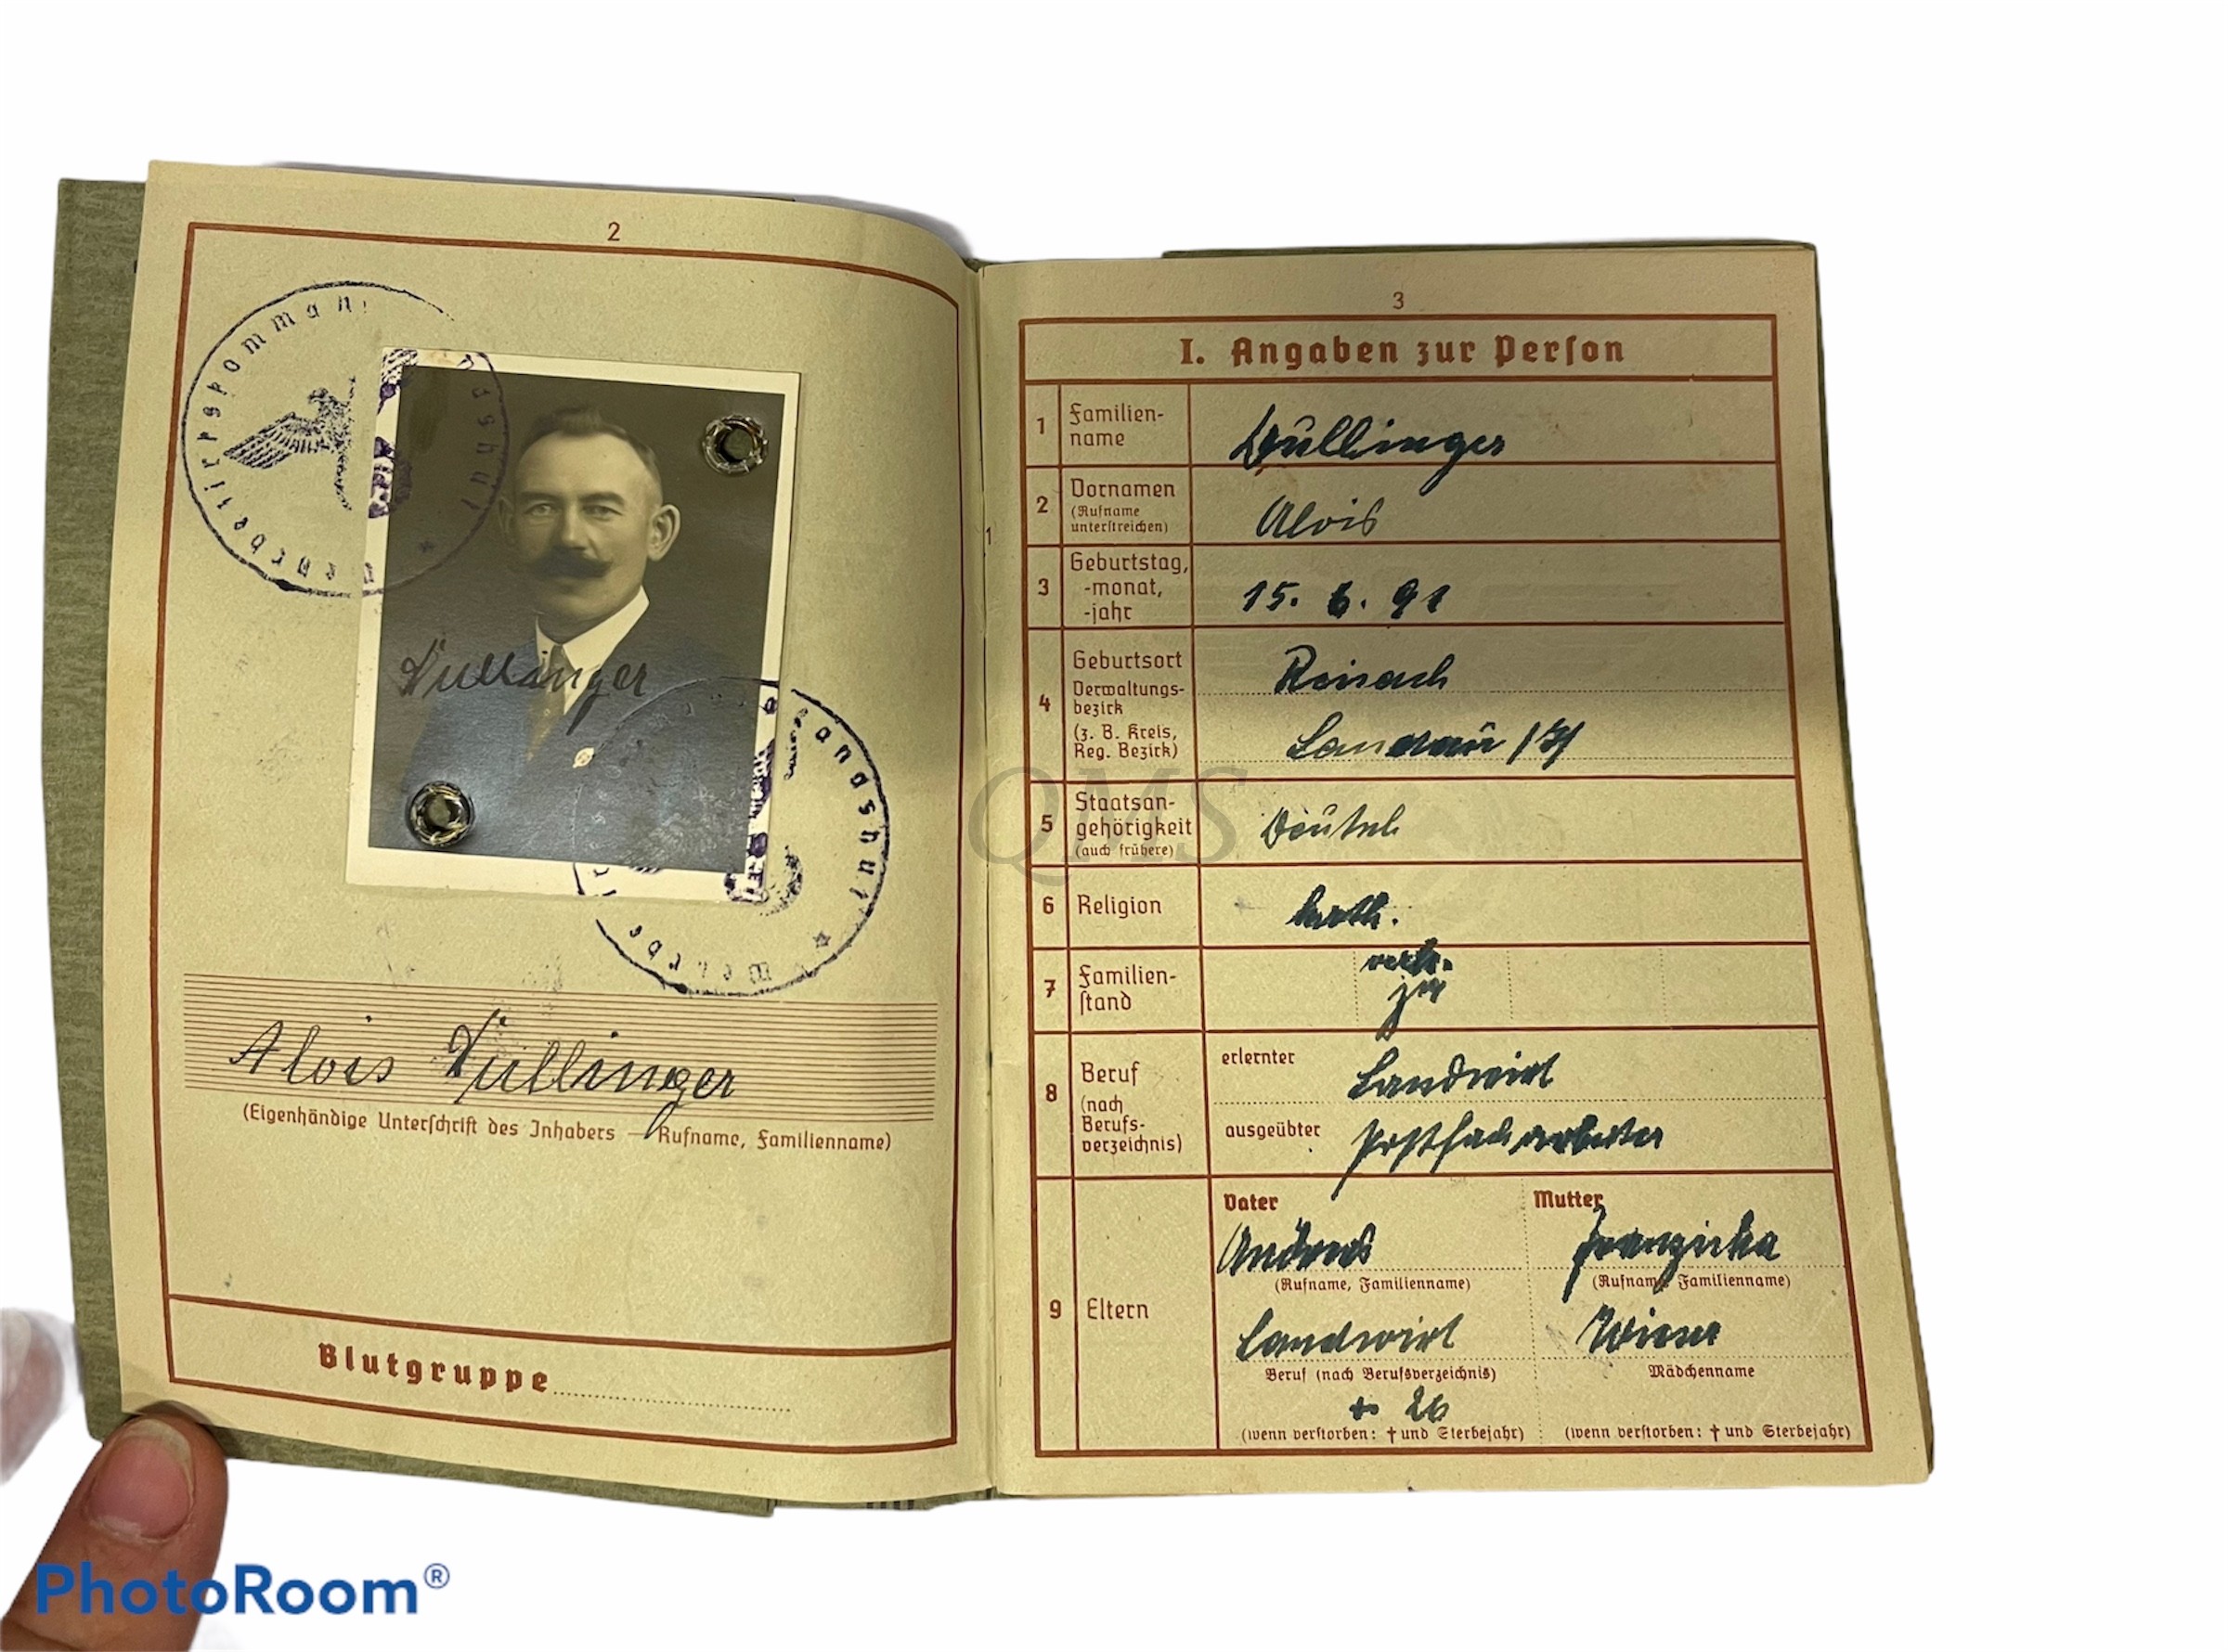 2
Dullinger
Landshut
Alois Dullinger
(Eigenhändige Unterſchrift des Inhabers — Rufname, Familienname)
Blutgruppe
3
I. Angaben zur Perſon
1
Familien-
name
Dullinger
2
Vornamen
(Rufname
unterſtreichen)
Alois
3
Geburtstag,
-monat,
-jahr
15. 6. 91
4
Geburtsort
Verwaltungs-
bezirk
(z. B. Kreis,
Reg. Bezirk)
Landau
5
Staatsan-
gehörigkeit
(auch frühere)
Deutsch
6
Religion
kath.
7
Familien-
ſtand
verh.
8
Beruf
(nach
Berufs-
verzeichnis)
erlernter
Landwirt
ausgeübter
Postfacharbeiter
9
Eltern
Vater
Mutter
Andreas
Franziska
(Rufname, Familienname)
(Rufname, Familienname)
Landwirt
Beruf (nach Berufsverzeichnis)
Mädchenname
+ 26
(wenn verſtorben: † und Sterbejahr)
(wenn verſtorben: † und Sterbejahr)
QMS
PhotoRoom®